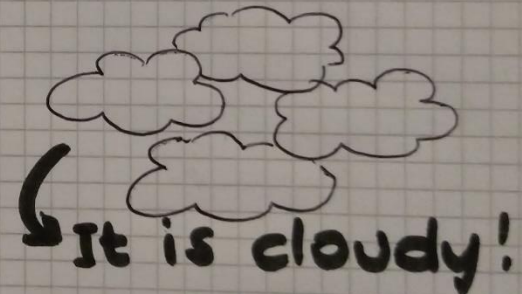 It is cloudy!